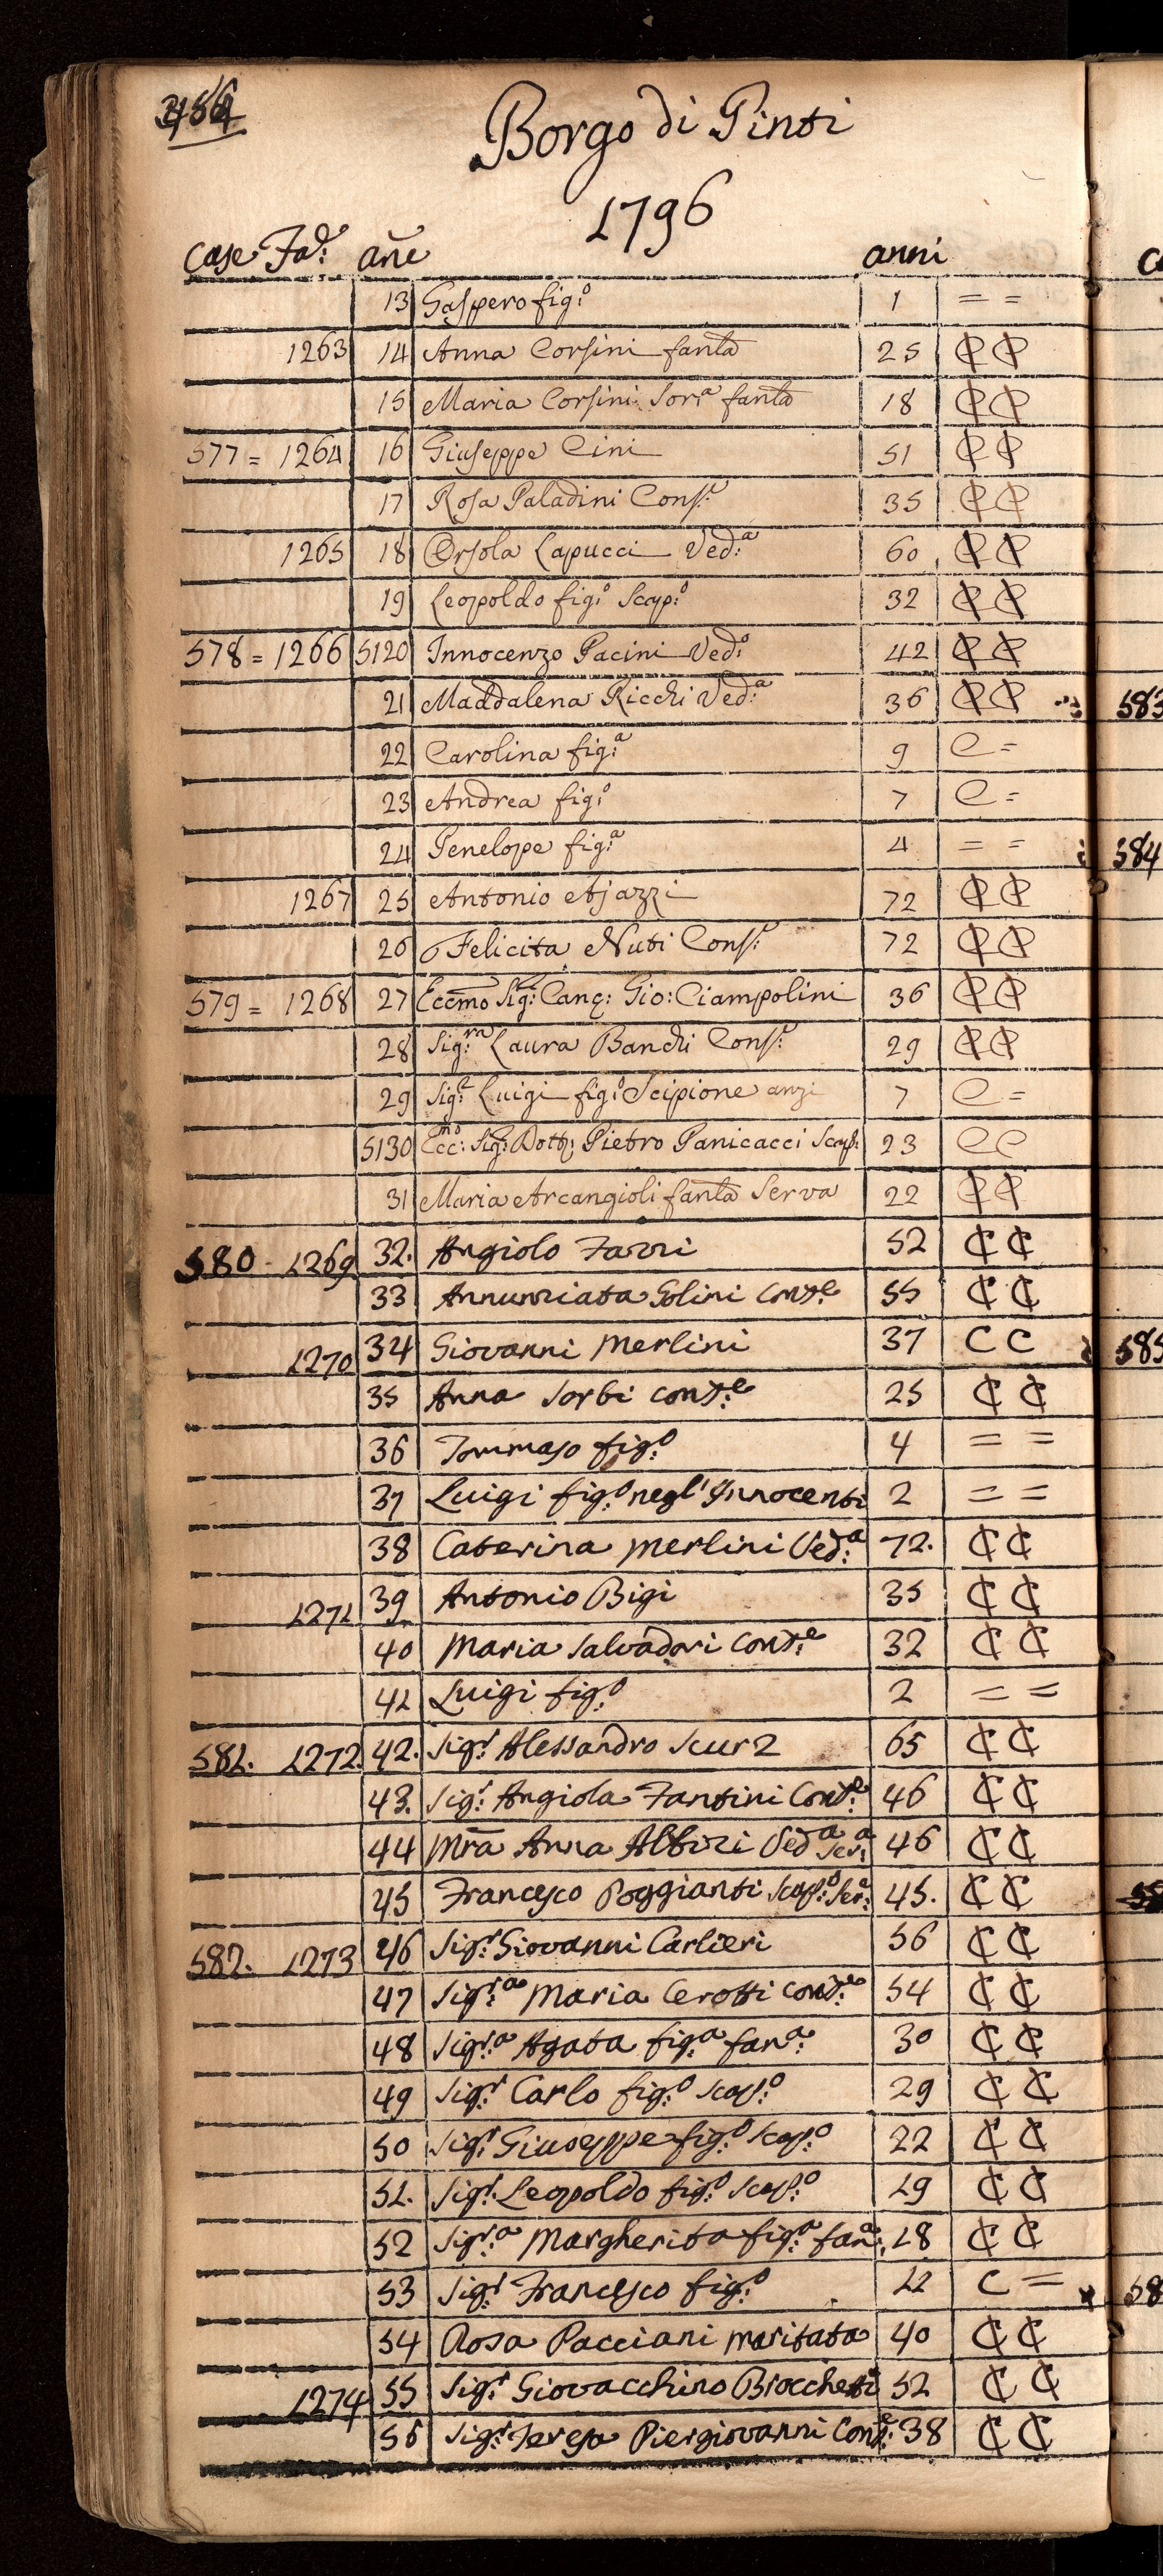 Borgo di Pinti
1796
Case Fa.e ane anni
13 Gaspero fig:o 1 = =
1263 14 Anna Corsini fanta 25 ₵ ₵
15 Maria Corsini Sor:a fanta 18 ₵ ₵
577 = 1264 16 Giuseppe Cini 51 ₵ ₵
17 Rosa Paladini Cons:e 35 ₵ ₵
1265 18 Orsola Lapucci Ved:a 60 ₵ ₵
19 Leopoldo fig:o Scap:o 32 ₵ ₵
578 = 1266 5120 Innocenzo Pacini Ved:o 42 ₵ ₵
21 Maddalena Ricchi Ved:a 36 ₵ ₵ 583
22 Carolina fig:a 9 C =
23 Andrea fig:o 7 C =
24 Penelope fig:a 4 = = 584
1267 25 Antonio Ajazzi 72 ₵ ₵
26 Felicita Nuti Cons:e 72 ₵ ₵
579 = 1268 27 Eccmo Sig: Canc: Gio: Ciampolini 36 ₵ ₵
28 Sig:ra Laura Banchi Cons:e 29 ₵ ₵
29 Sig:r Luigi fig:o Scipione anzi 7 C =
5130 Ecc:mo Sig: Dott: Pietro Panicacci Scap: 23 C C
31 Maria Arcangioli fanta Serva 22 ₵ ₵
580 - 1269 32. Angiolo Fazzi 52 ₵ ₵
33 Annunziata Solini Cons:e 55 ₵ ₵
1270 34 Giovanni Merlini 37 C C 585
35 Anna Sorbi cons:e 25 ₵ ₵
36 Tommaso fig:o 4 = =
37 Luigi fig:o negl'Innocenti 2 = =
38 Caterina Merlini Ved:a 72. ₵ ₵
1271 39 Antonio Bigi 35 ₵ ₵
40 Maria Salvadori Cons:e 32 ₵ ₵
41 Luigi fig:o 2 = =
581. 1272. 42. Sig:r Alessandro Scurz 65 ₵ ₵
43. Sig:r Angiola Fantini Cons:e 46 ₵ ₵
44 Mra Anna Albizi Ved:a Ser:a 46 ₵ ₵
45 Francesco Poggianti Scap:o Ser:e 45. ₵ ₵
582. 1273 46 Sig:r Giovanni Carlieri 56 ₵ ₵
47 Sig:ra Maria Cerotti cons:e 54 ₵ ₵
48 Sig:ra Agata fig:a fan:a 30 ₵ ₵
49 Sig:r Carlo fig:o Scap:o 29 ₵ ₵
50 Sig:r Giuseppe fig:o Scap:o 22 ₵ ₵
51. Sig:r Leopoldo fig:o Scap:o 19 ₵ ₵
52 Sig:ra Margherita fig:a fan:a 18 ₵ ₵
53 Sig:r Francesco fig:o 11 C = 58
54 Rosa Pacciani maritata 40 ₵ ₵
1274 55 Sig:r Giovacchino Brocchetti 52 ₵ ₵
56 Sig:r Teresa Piergiovanni Cons:e 38 ₵ ₵